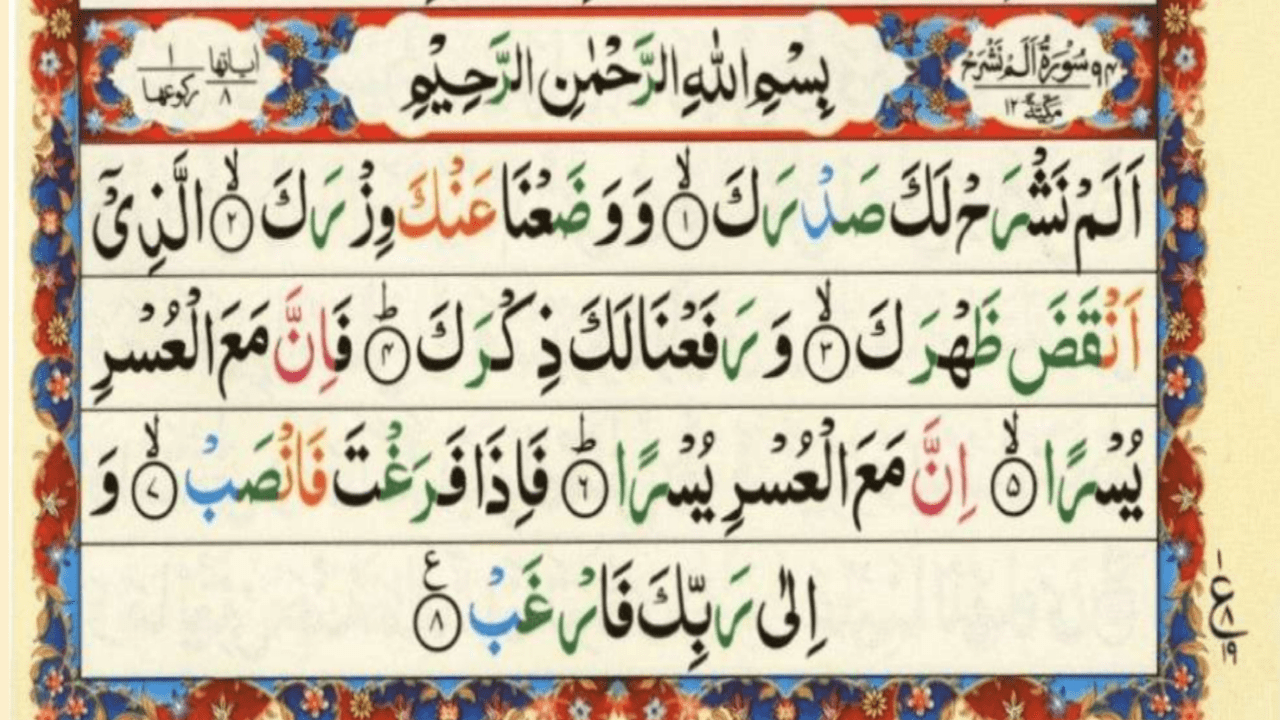 سُوْرَةُ اَلَمْ نَشْرَحْ ۹۴
مَكِّيَّةٌ ۱۲
بِسْمِ اللّٰهِ الرَّحْمٰنِ الرَّحِيْمِ
اٰياتها ۸
ركوعها ۱
اَلَمْ نَشْرَحْ لَكَ صَدْرَكَ ۙ﴿۱﴾ وَ وَضَعْنَا عَنْكَ وِزْرَكَ ۙ﴿۲﴾ الَّذِىْۤ
اَنْقَضَ ظَهْرَكَ ۙ﴿۳﴾ وَ رَفَعْنَا لَكَ ذِكْرَكَ ؕ﴿۴﴾ فَاِنَّ مَعَ الْعُسْرِ
يُسْرًا ۙ﴿۵﴾ اِنَّ مَعَ الْعُسْرِ يُسْرًا ؕ﴿۶﴾ فَاِذَا فَرَغْتَ فَانْصَبْ ۙ﴿۷﴾ وَ
اِلٰى رَبِّكَ فَارْغَبْ ﴿۸﴾ ع
۱
ع ۸
۱۹